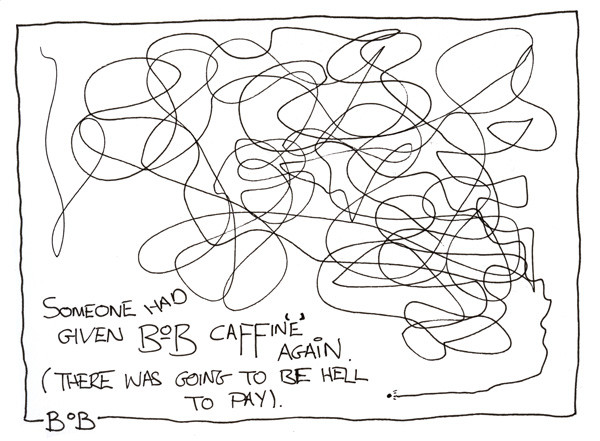 SOMEONE HAD
GIVEN BOB CAFFINE
AGAIN.
(THERE WAS GOING TO BE HELL
TO PAY).
BOB